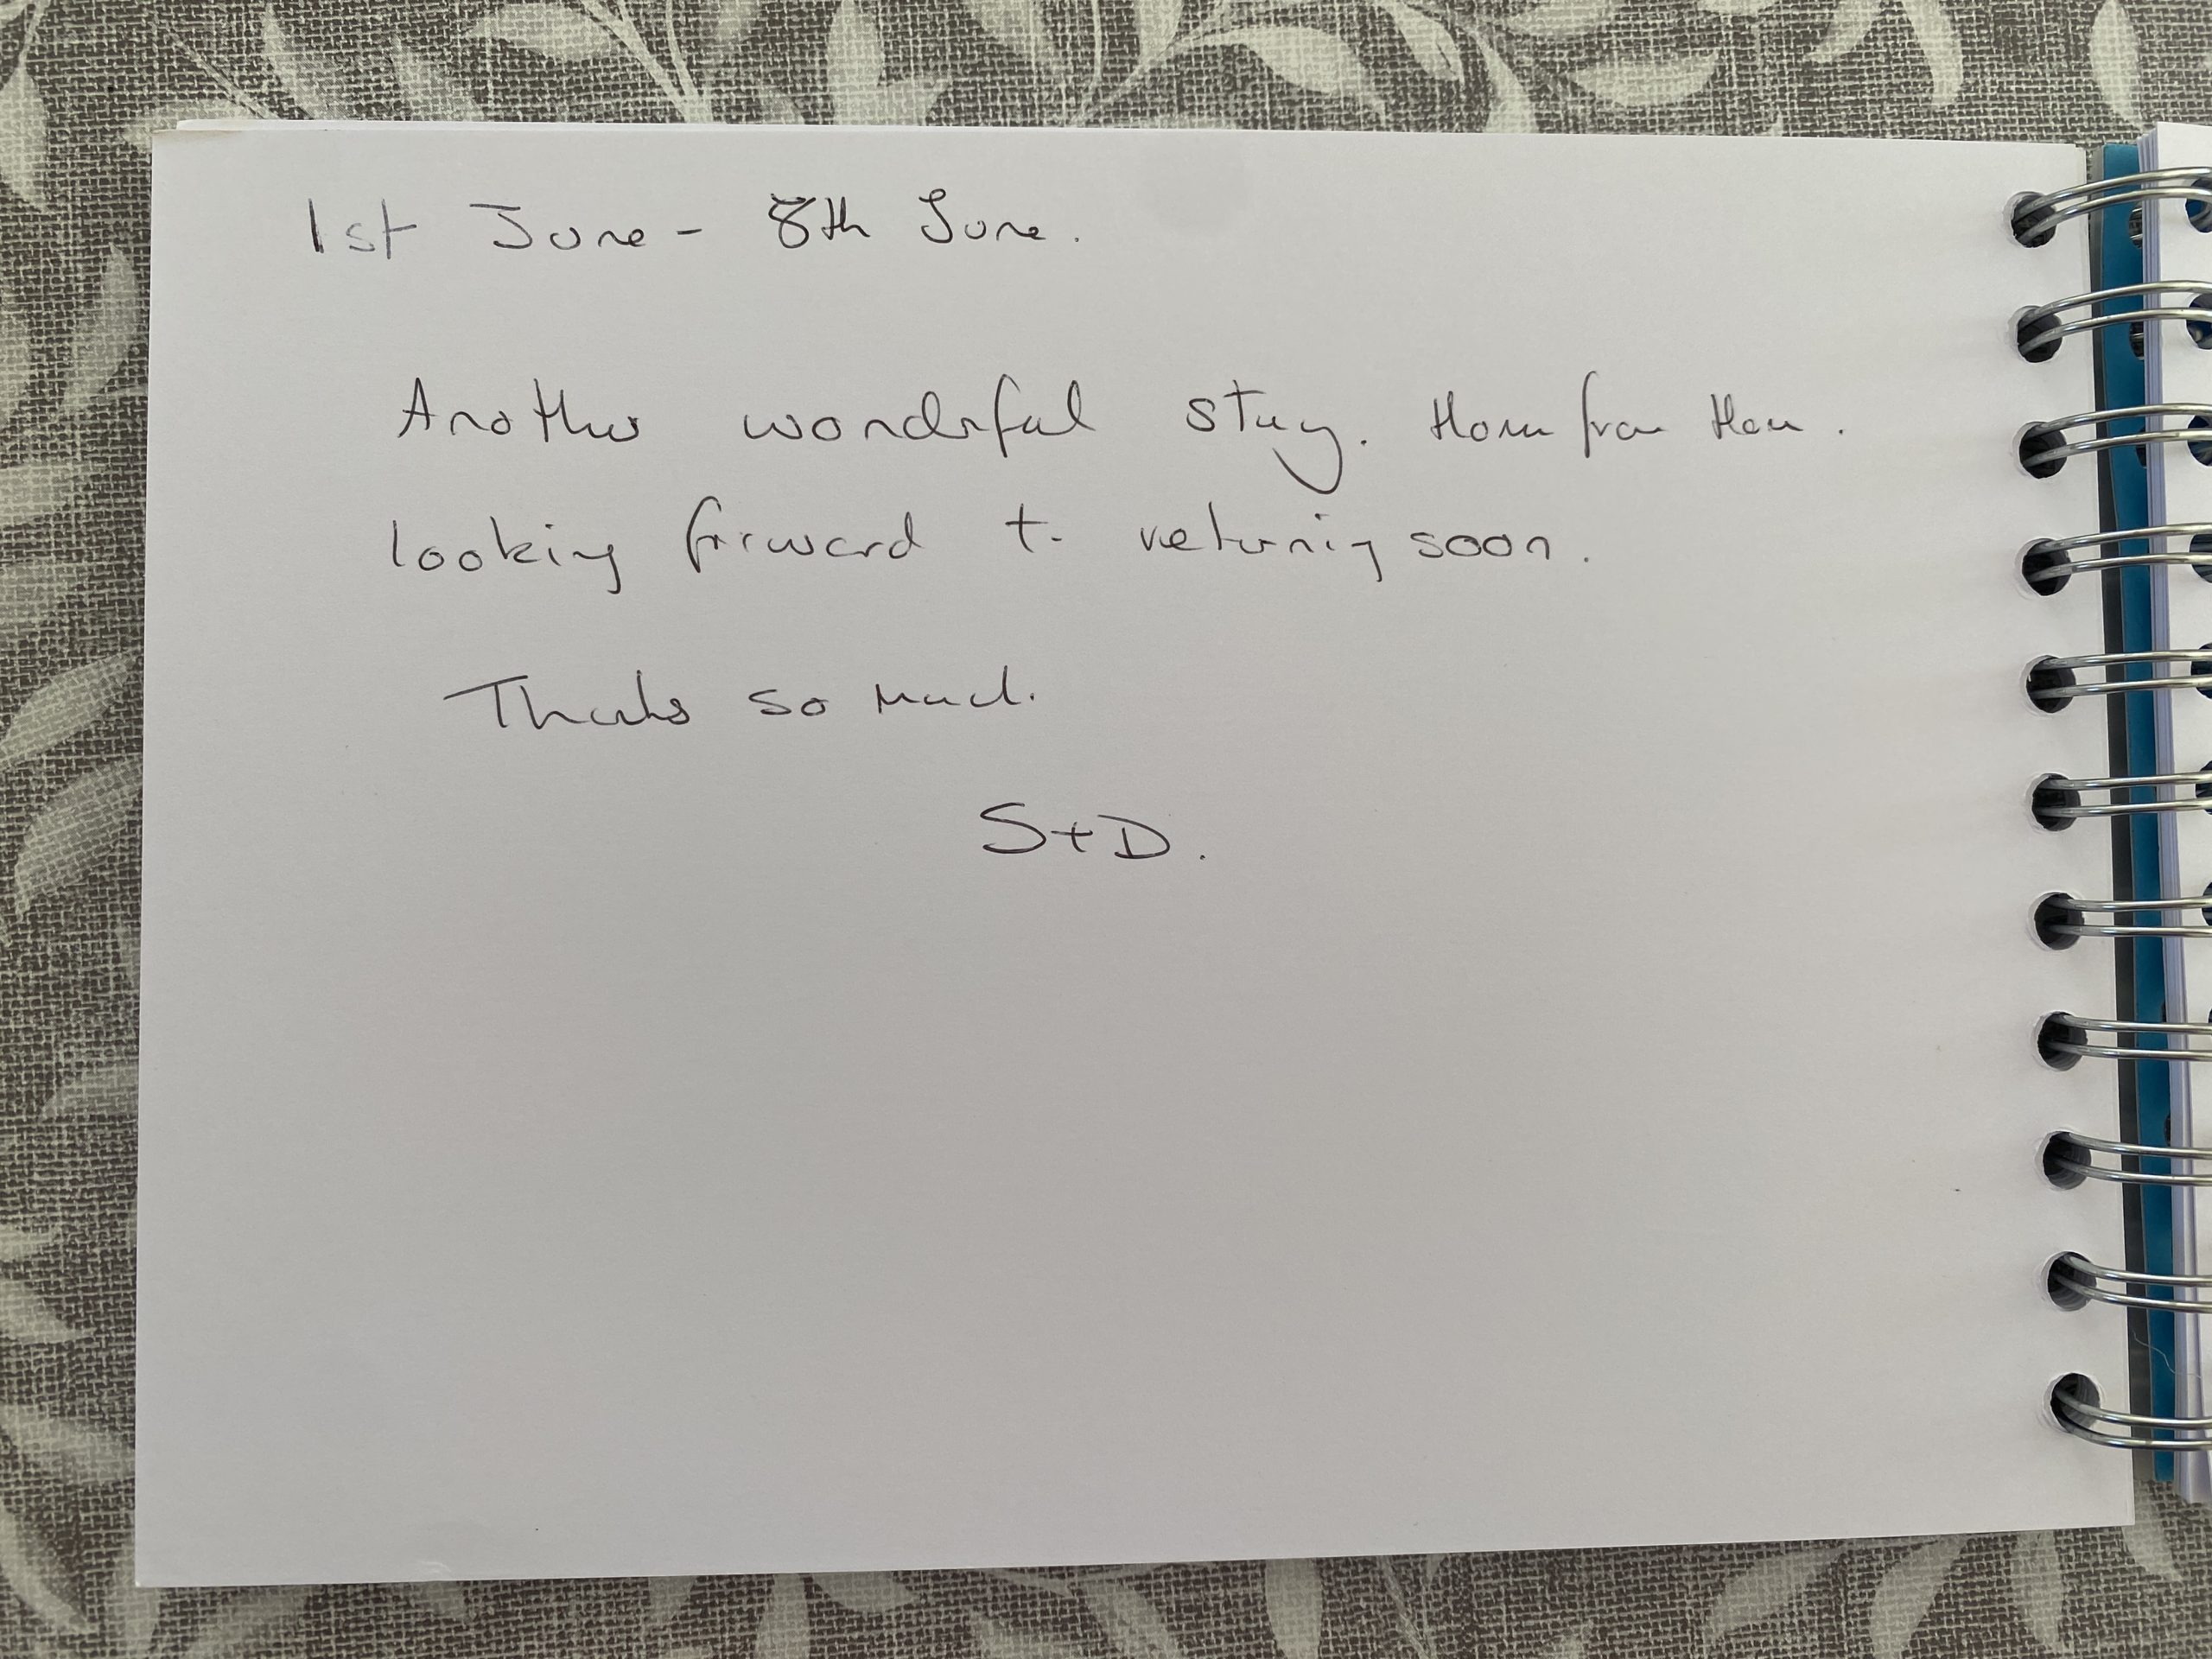 1st June - 8th June.
Another wonderful stay. Home from Home.
looking forward to returning soon.
Thanks so much.
S+D.